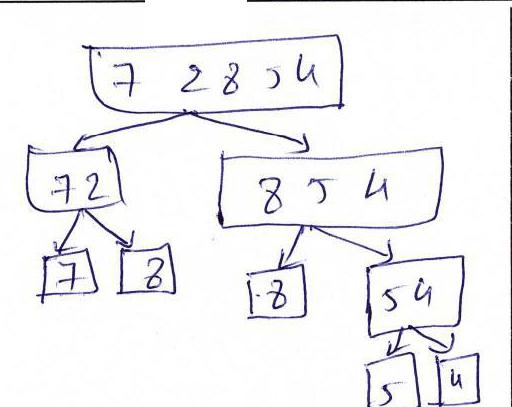 7 2 8 5 4
7 2
8 5 4
7
8
8
5 4
5
4